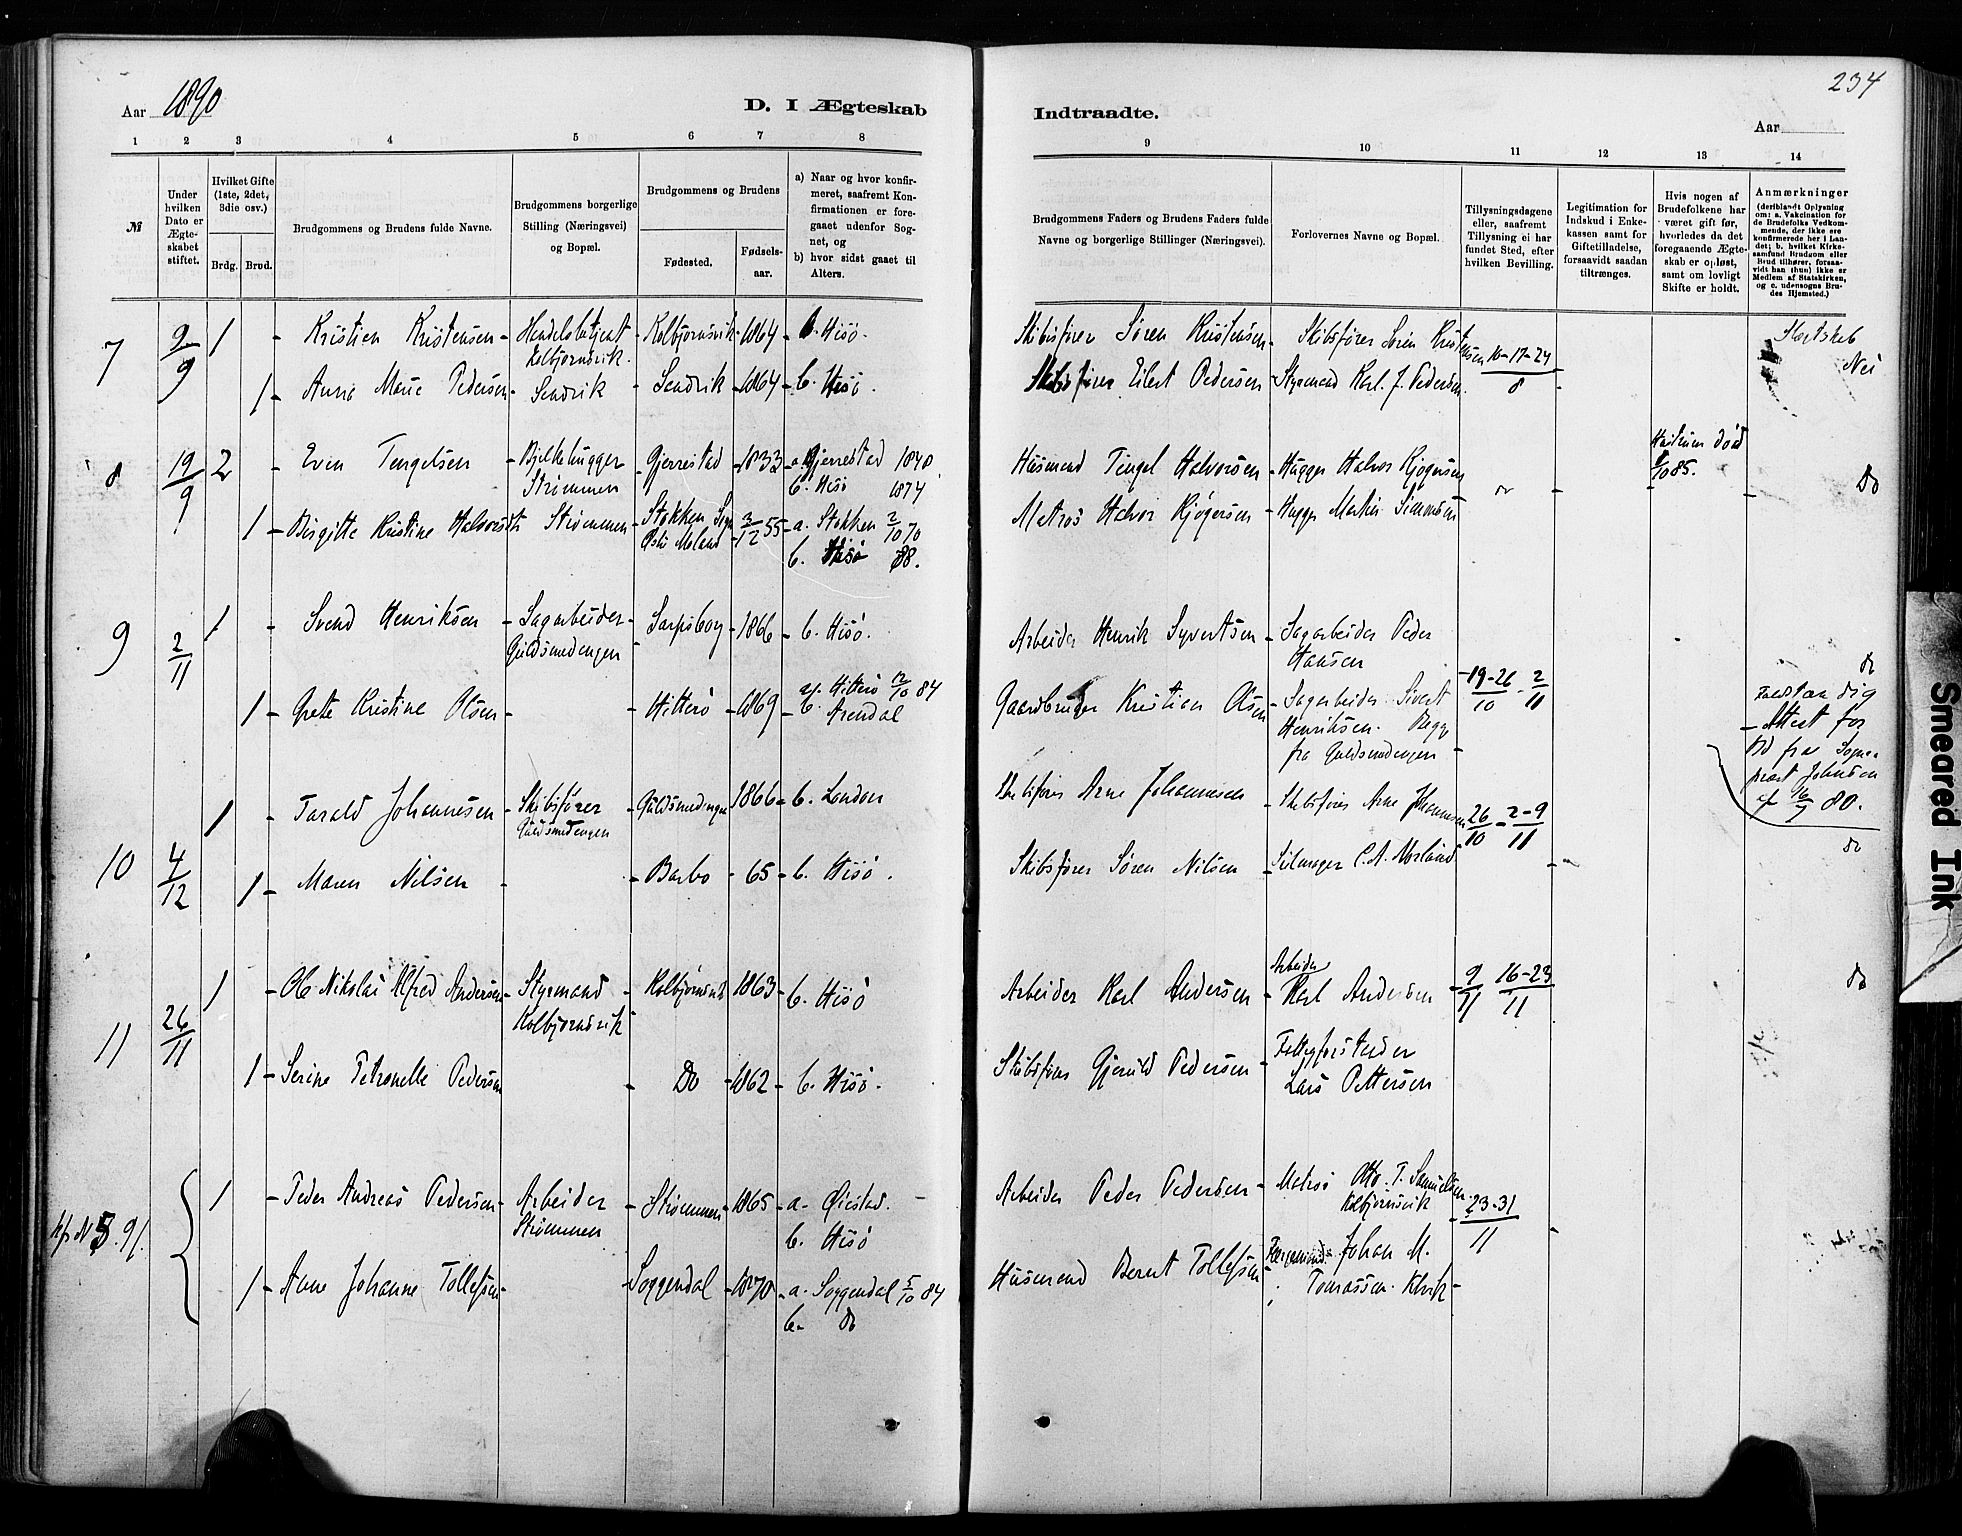 234
Aar 1890
D. I Ægteskab
Indtraadte.
Aar
1 2 3 4 5 6 7 8
9 10 11 12 13 14
№
Under hvilken Dato er Ægteskabet stiftet.
Hvilket Gifte (1ste, 2det, 3die osv.)
Brdg. Brud.
Brudgommens og Brudens fulde Navne.
Brudgommens borgerlige Stilling (Næringsvei) og Bopæl.
Brudgommens og Brudens
Fødested.
Fødselsaar.
a) Naar og hvor konfirmeret, saafremt Konfirmationen er foregaaet udenfor Sognet, og
b) hvor sidst gaaet til Alters.
Brudgommens Faders og Brudens Faders fulde Navne og borgerlige Stillinger (Næringsvei).
Forlovernes Navne og Bopæl.
Tillysningsdagene eller, saafremt Tillysning ei har fundet Sted, efter hvilken Bevilling.
Legitimation for Indskud i Enkekassen samt for Giftetilladelse, forsaavidt saadan tiltrænges.
Hvis nogen af Brudefolkene har været gift før, hvorledes da det foregaaende Ægteskab er opløst, samt om lovligt Skifte er holdt.
Anmærkninger (deriblandt Oplysning om: a. Vakcination for de Brudefolks Vedkommende, der ikke ere konfirmerede her i Landet; b. hvilket Kirkesamfund Brudgom eller Brud tilhører, forsaavidt han (hun) ikke er Medlem af Statskirken, og c. udensogns Brudes Hjemsted.)
7 9/9 1 - Kristien Kristensen - Handelsbetjent Kolbjørnsvik - Kolbjørnsvik - 1864 - b. Hisø.
Skibsfører Søren Kristensen - Skibsfører Søren Kristensen 10-17-24/8
Slægtskab Nei
1 - Anna Marie Pedersen - Sandvik - Sandvik - 1864 - b. Hisø.
Skibsfører Eilert Pedersen - Styrmand Karl J. Pedersen
8 19/9 2 - Even Tengelsen - Bjelkehugger Strømmen - Gjerrestad - 1833 - a. Gjerrestad 1848
b. Hisø 1874
Husmand Tingel Halvorsen - Hugger Halvor Kjøgersen
Hustruen død 1/10 85.
Do
1 - Birgitte Kristine Halvorsdt Strømmen - Stokken Sogn Østre Moland - 3/12 55 - a. Stokken 2/10 70
b. Hisø 88.
Matros Halvor Kjøgersen - Hugger Martin Simonsen
9 2/11 1 Svend Henriksen - Sagarbeider Guldsmedengen - Sarpsborg - 1866 - b. Hisø.
Arbeider Henrik Syvertsen - Sagarbeider Peder Hansen
19-26/10 - 2/11
do
1 - Grete Kristine Olsen - Hitterø - 1869 - a. Hitterø 12/10 84
b. Arendal
Gaardbruger Kristian Olsen - Sagarbeider Sivert Henriksen. Begge fra Guldsmedengen
Fuldstændig Attest for
fra Sognepræst Johnsen
af 16/7 80.
10 4/12 1 - Tarald Johannesen - Skibsfører Guldsmedengen - Guldsmedengen 1866 - b. London
Skibsfører Arne Johannesen - Skibsfører Arne Johannesen 26/10 - 2-9/11
do
1 - Maren Nilsen - Barbo - 65 - b. Hisø.
Skibsfører Søren Nilsen - C. A. Morland
11 26/11 1 - Ole Nikolai Alfred Andersen - Styrmand Kolbjørnsvik - Kolbjørnsvik - 1863 - b. Hisø
Arbeider Karl Andersen - Arbeider Karl Andersen - 9/11 16-23/11
do
1 - Serine Petronelle Pedersen - Do - 1862 - b. Hisø.
Skibsfører Gjeruld Pedersen - Fattigforstander Lars Pettersen
N 5. 91.
1 - Peder Andreas Pedersen - Arbeider Strømmen - Strømmen - 1865 - a. Øiestad.
b. Hisø
Arbeider Peder Pedersen - Matros Otto T. Samuelsen Kolbjørnsvik - 23-31/11
1 - Anne Johanne Tollefsen - Soggendal - 1870 - a. Soggendal 5/10 84
b. Do
Husmand Bernt Tollefsen - Johan M. Tomassen
Smeared Ink